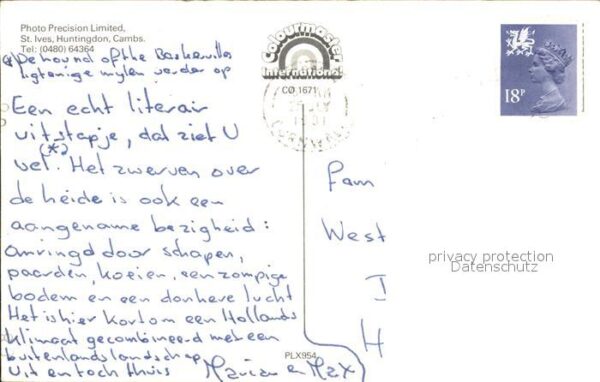 Photo Precision Limited,
St. Ives, Huntingdon, Cambs.
Tel: (0480) 64364
De hound of the Baskervilles
ligt enige mijlen verder op
Een echt literair
uitstapje, dat ziet U
(*)
wel. Het zwerven over
de heide is ook een
aangename bezigheid:
omringd door schapen,
paarden, koeien, een zompige
bodem en een donkere lucht
Het is hier kortom een Hollands
klimaat gecombineerd met een
buitenlands landschap
Uit en toch thuis
Marian en Max
Colourmaster
International
CO 1671
PLX954
18P
Fam
West
I
H
privacy protection
Datenschutz